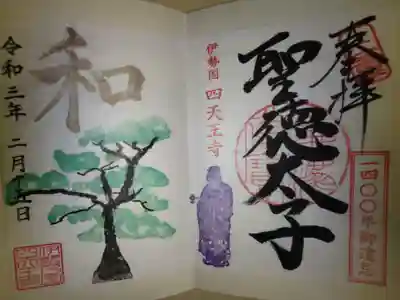 奉拝
聖徳太子
一四〇〇年御遠忌
伊勢国 四天王寺
和
令和三年 二月十五日